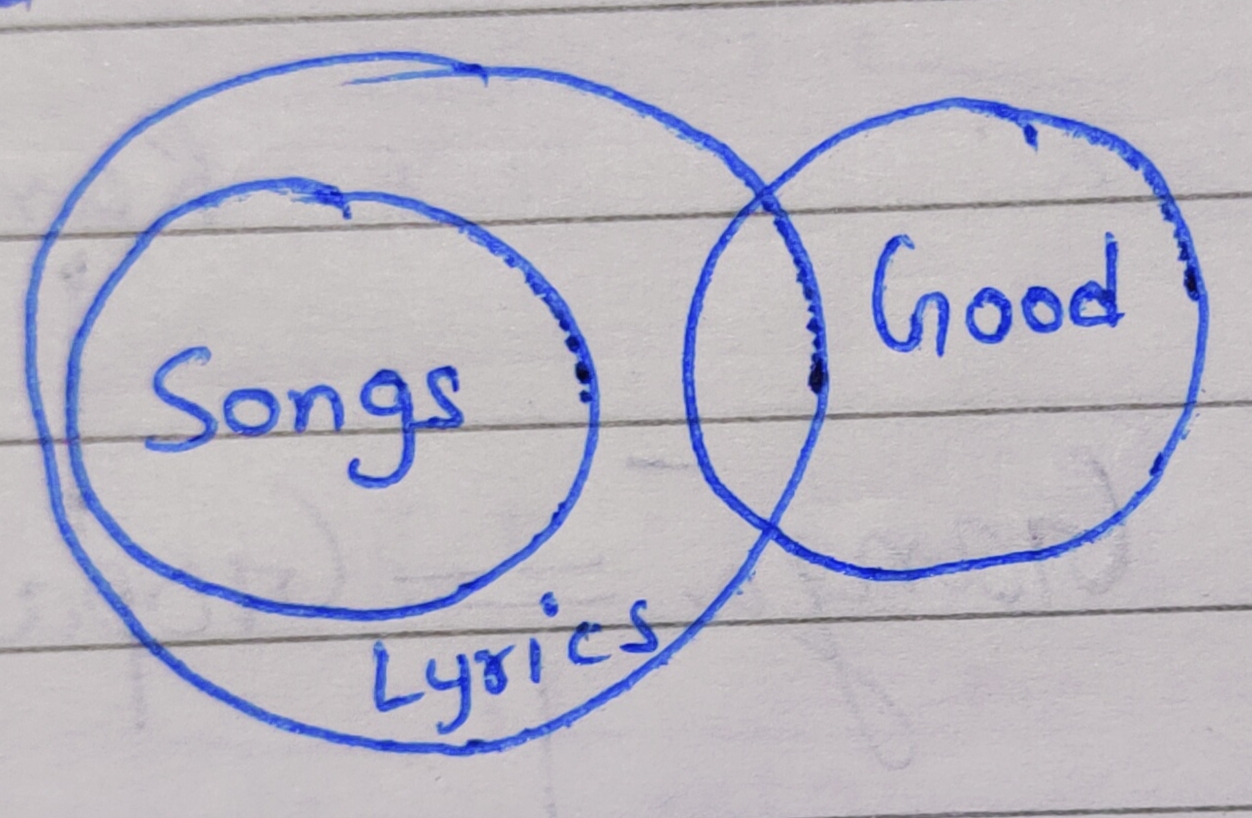 Songs
Good
Lyrics